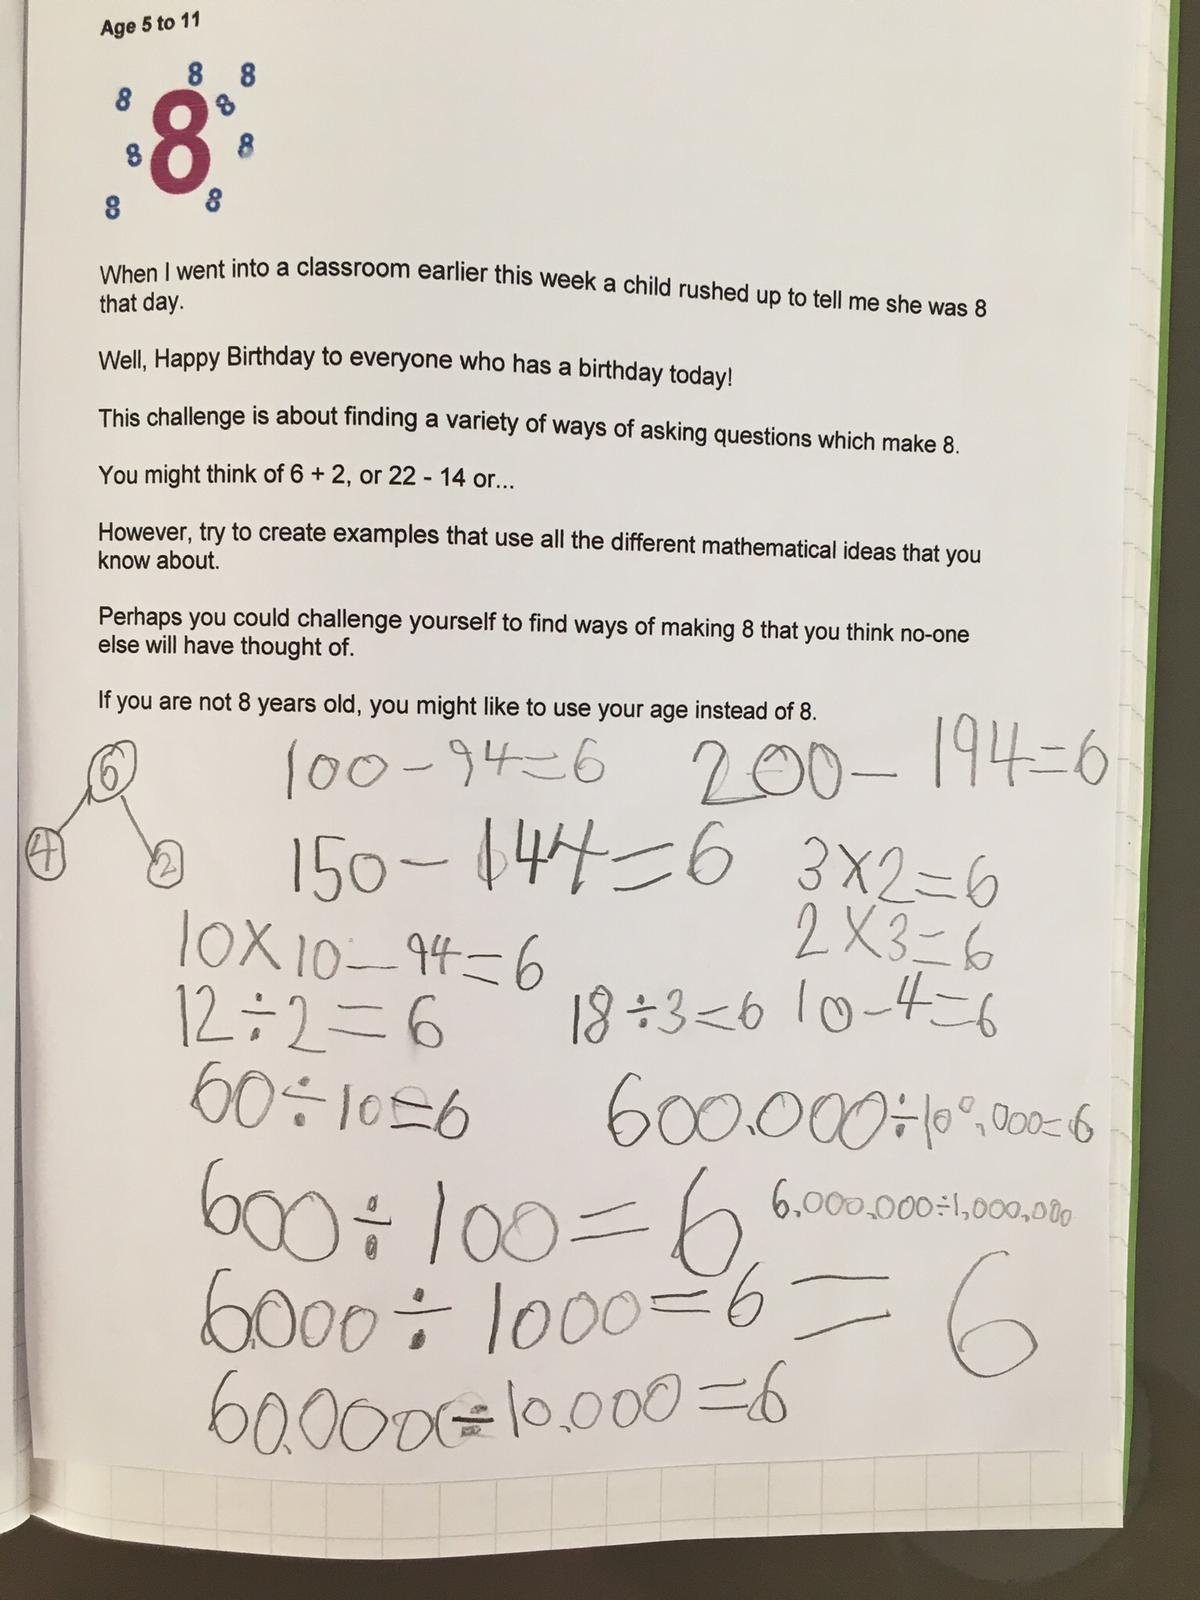 Age 5 to 11
8 8
8 8
8 8 8
8 8
When I went into a classroom earlier this week a child rushed up to tell me she was 8
that day.
Well, Happy Birthday to everyone who has a birthday today!
This challenge is about finding a variety of ways of asking questions which make 8.
You might think of 6 + 2, or 22 - 14 or...
However, try to create examples that use all the different mathematical ideas that you
know about.
Perhaps you could challenge yourself to find ways of making 8 that you think no-one
else will have thought of.
If you are not 8 years old, you might like to use your age instead of 8.
6
4 2
100-94=6
200-194=6
150-144=6
3×2=6
2×3=6
10×10-94=6
12÷2=6
18÷3=6
10-4=6
60÷10=6
600,000÷100,000=6
600÷100=6
6,000,000÷1,000,000
=6
6,000÷1000=6
60,000÷10,000=6